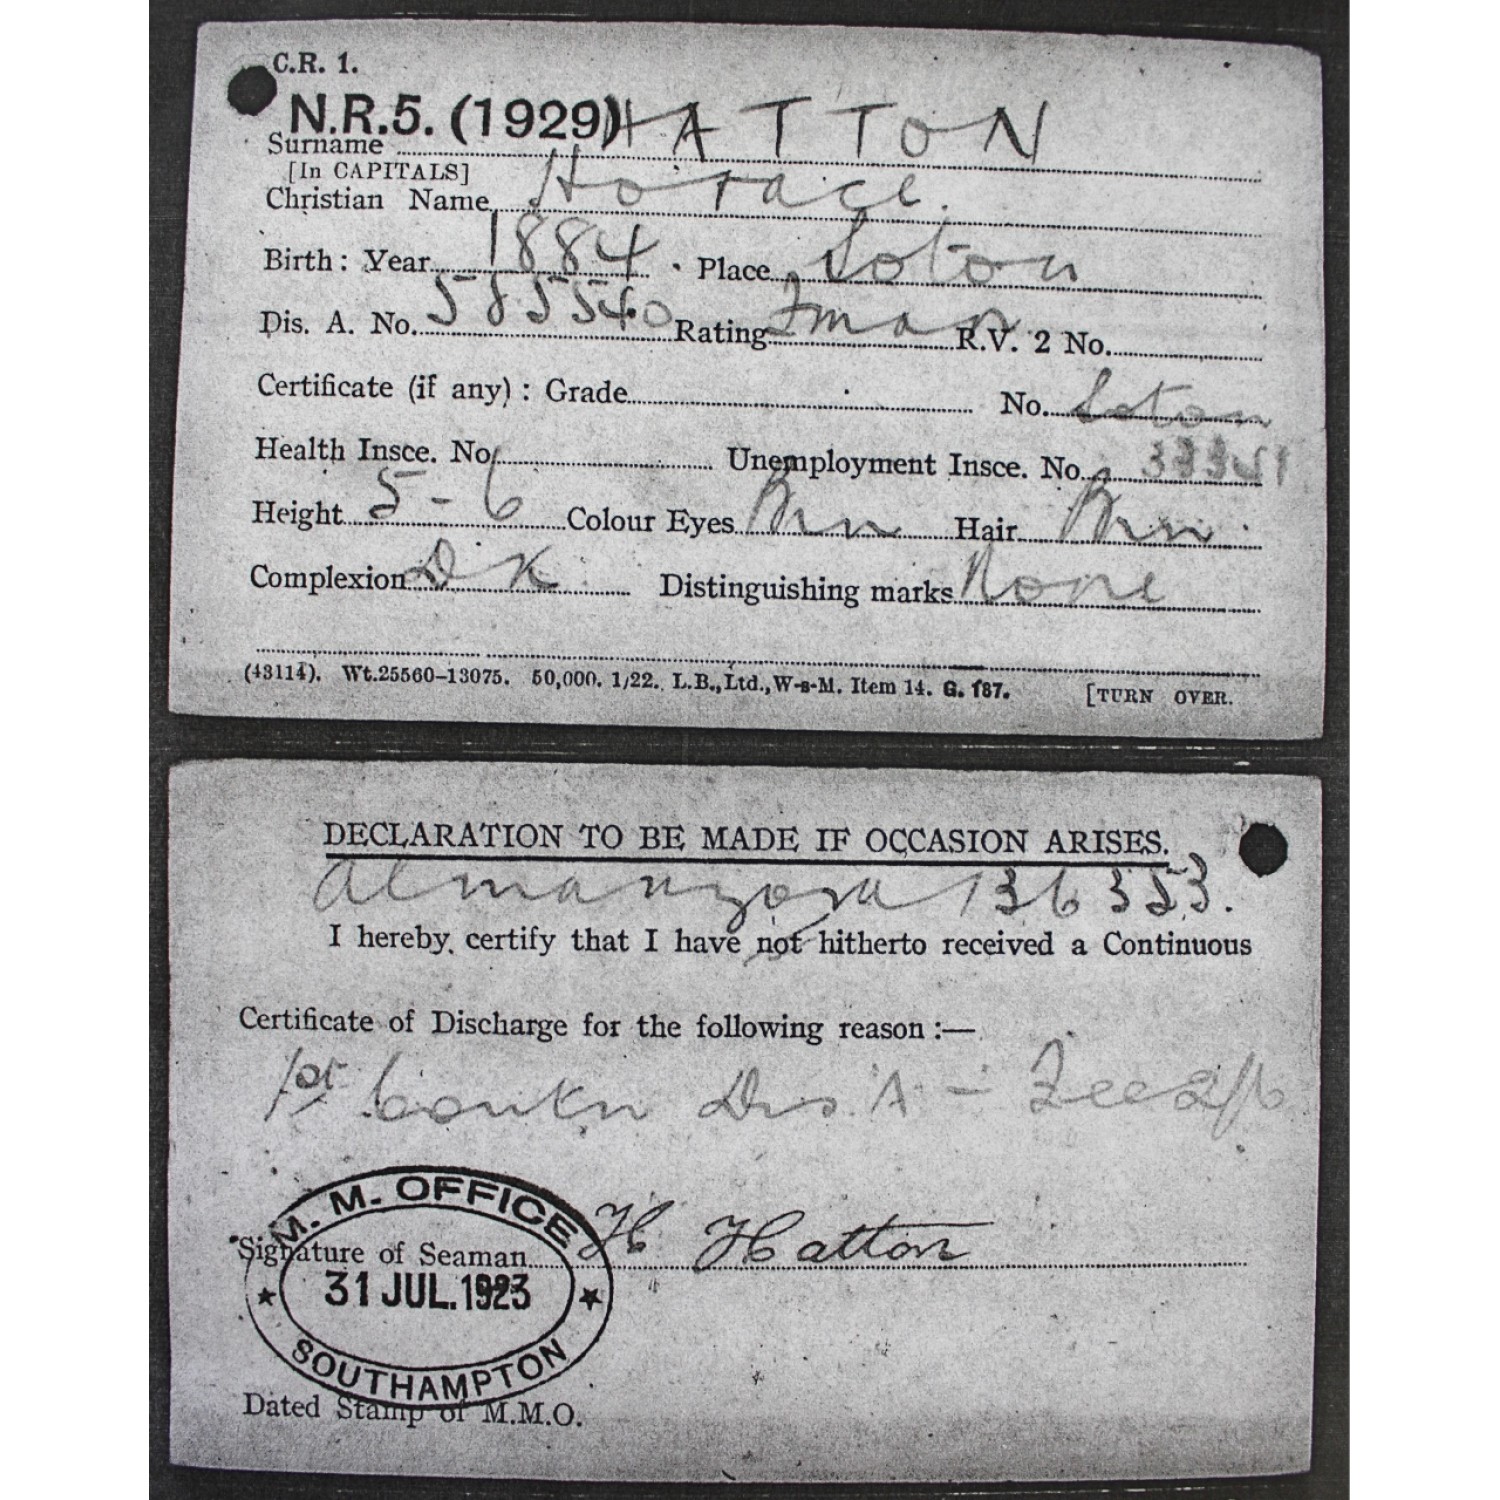 C.R. 1.
N.R.5. (1929)
Surname HATTON
[In CAPITALS]
Christian Name Horace.
Birth: Year 1884 Place Soton
Dis. A. No. 585540 Rating Fman R.V. 2 No.
Certificate (if any): Grade No. Soton
Health Insce. No. Unemployment Insce. No.
Height 5-6 Colour Eyes Brn Hair Brn
Complexion DK Distinguishing marks None
(43114). Wt.25560-13075. 50,000. 1/22. L.B., Ltd., W-s-M. Item 14. G. 187. [TURN OVER.
DECLARATION TO BE MADE IF OCCASION ARISES.
Almanzora 136353.
I hereby certify that I have not hitherto received a Continuous
Certificate of Discharge for the following reason:—
1st Contn Dis. A - Fee 2/6
M. M. OFFICE
Signature of Seaman H Hatton
31 JUL. 1923
SOUTHAMPTON
Dated Stamp of M.M.O.